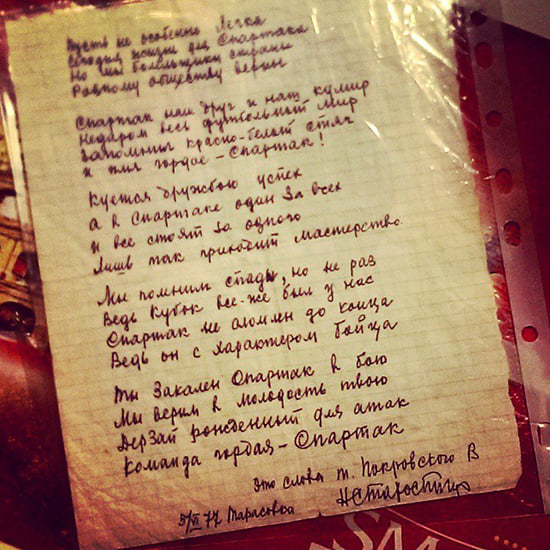 Пусть не особенно легка
Сегодня жизнь для Спартака
Но мы болельщики страны
Родному обществу верны
Спартак наш друг и наш кумир
Недаром весь футбольный мир
Запомнил красно-белый стяг
и имя гордое - Спартак!
Куется дружбою успех
а в Спартаке один за всех
и все стоят за одного
Лишь так приходит мастерство.
Мы помним спады, но не раз
Ведь Кубок все-же был у нас
Спартак не сломлен до конца
Ведь он с характером бойца
Ты Закален Спартак в бою
Мы верим в молодость твою
Дерзай рожденный для атак
Команда гордая - Спартак
Это слова т. Покровского В
НСтаростин
77 Тарасовка
SM